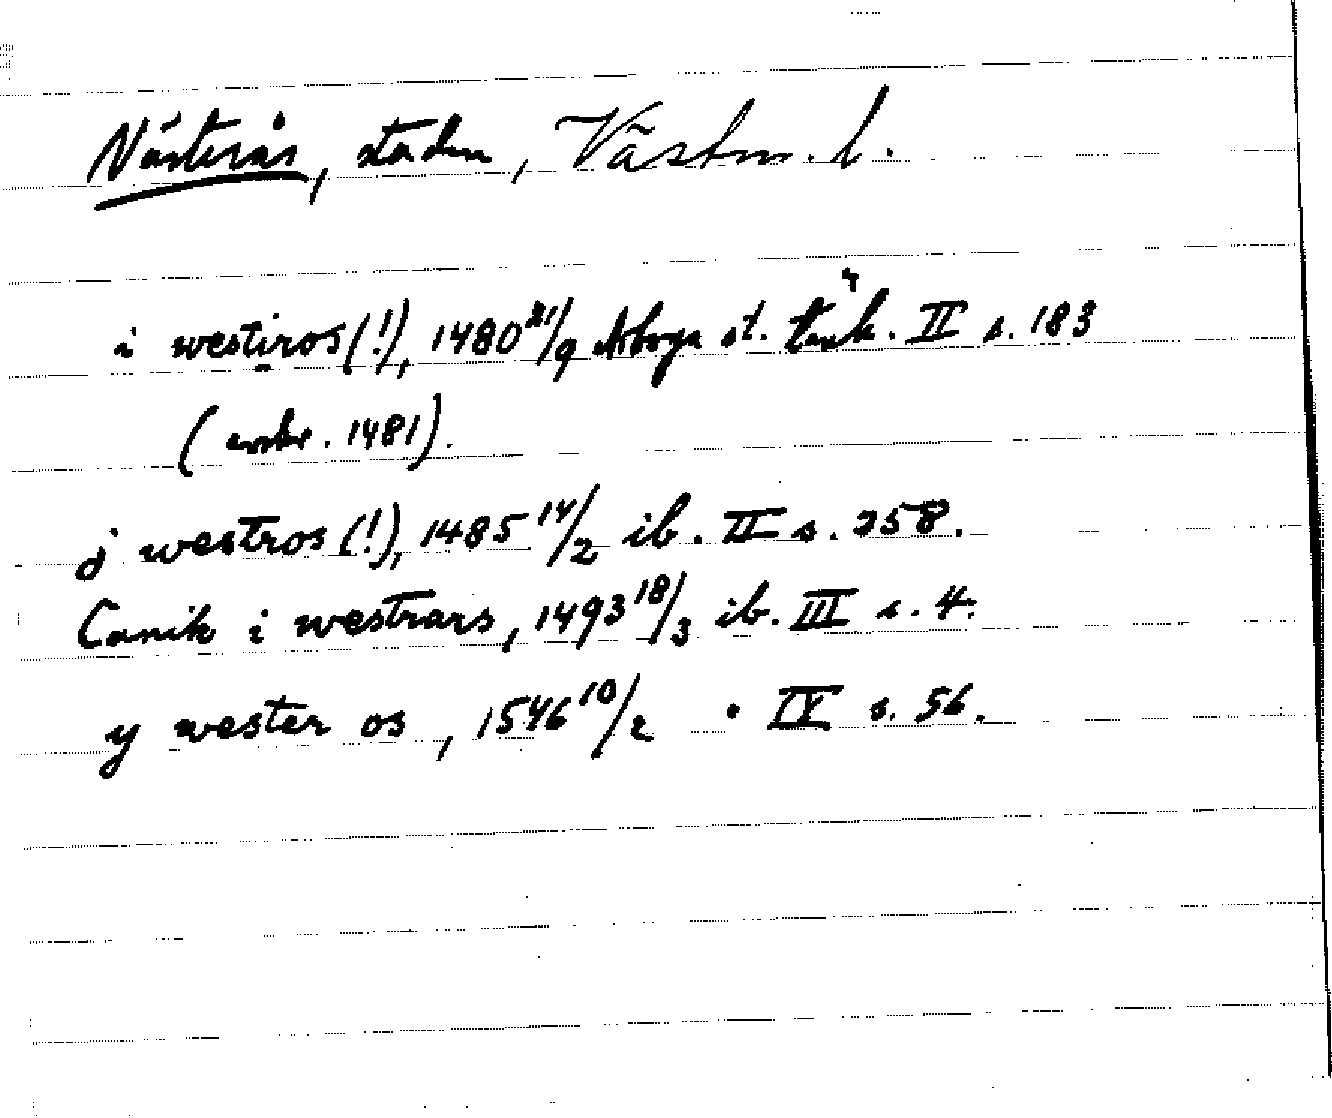 Västerås, staden, Västm. l.
i westiros(!), 1480 21/9 Arboga st. tänk. II s. 183
(avskr. 1481).
j westros(!), 1485 14/2 ib. II s. 258.
Canik i westrars, 1493 18/3 ib. III s. 4.
y wester os, 1546 10/2 " IV s. 56.